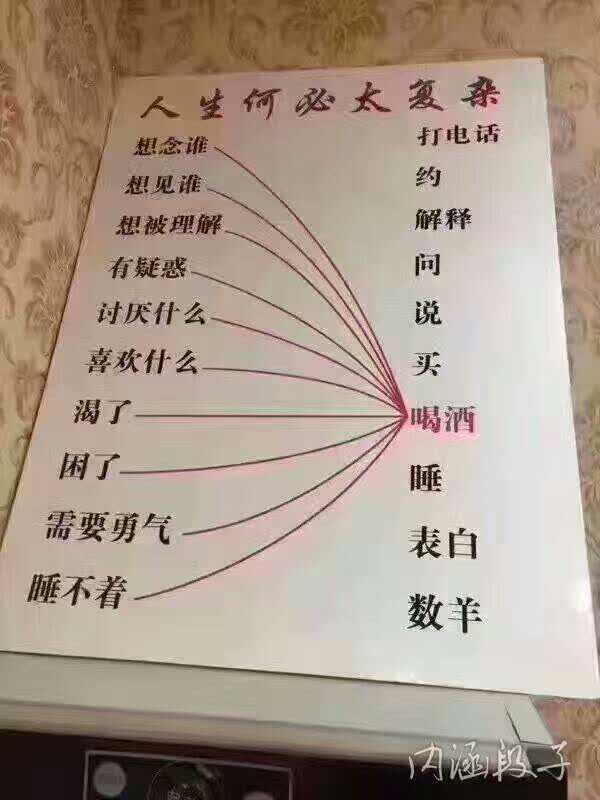 人生何必太复杂
想念谁
打电话
想见谁
约
想被理解
解释
有疑惑
问
讨厌什么
说
喜欢什么
买
渴了
喝酒
困了
睡
需要勇气
表白
睡不着
数羊
内涵段子